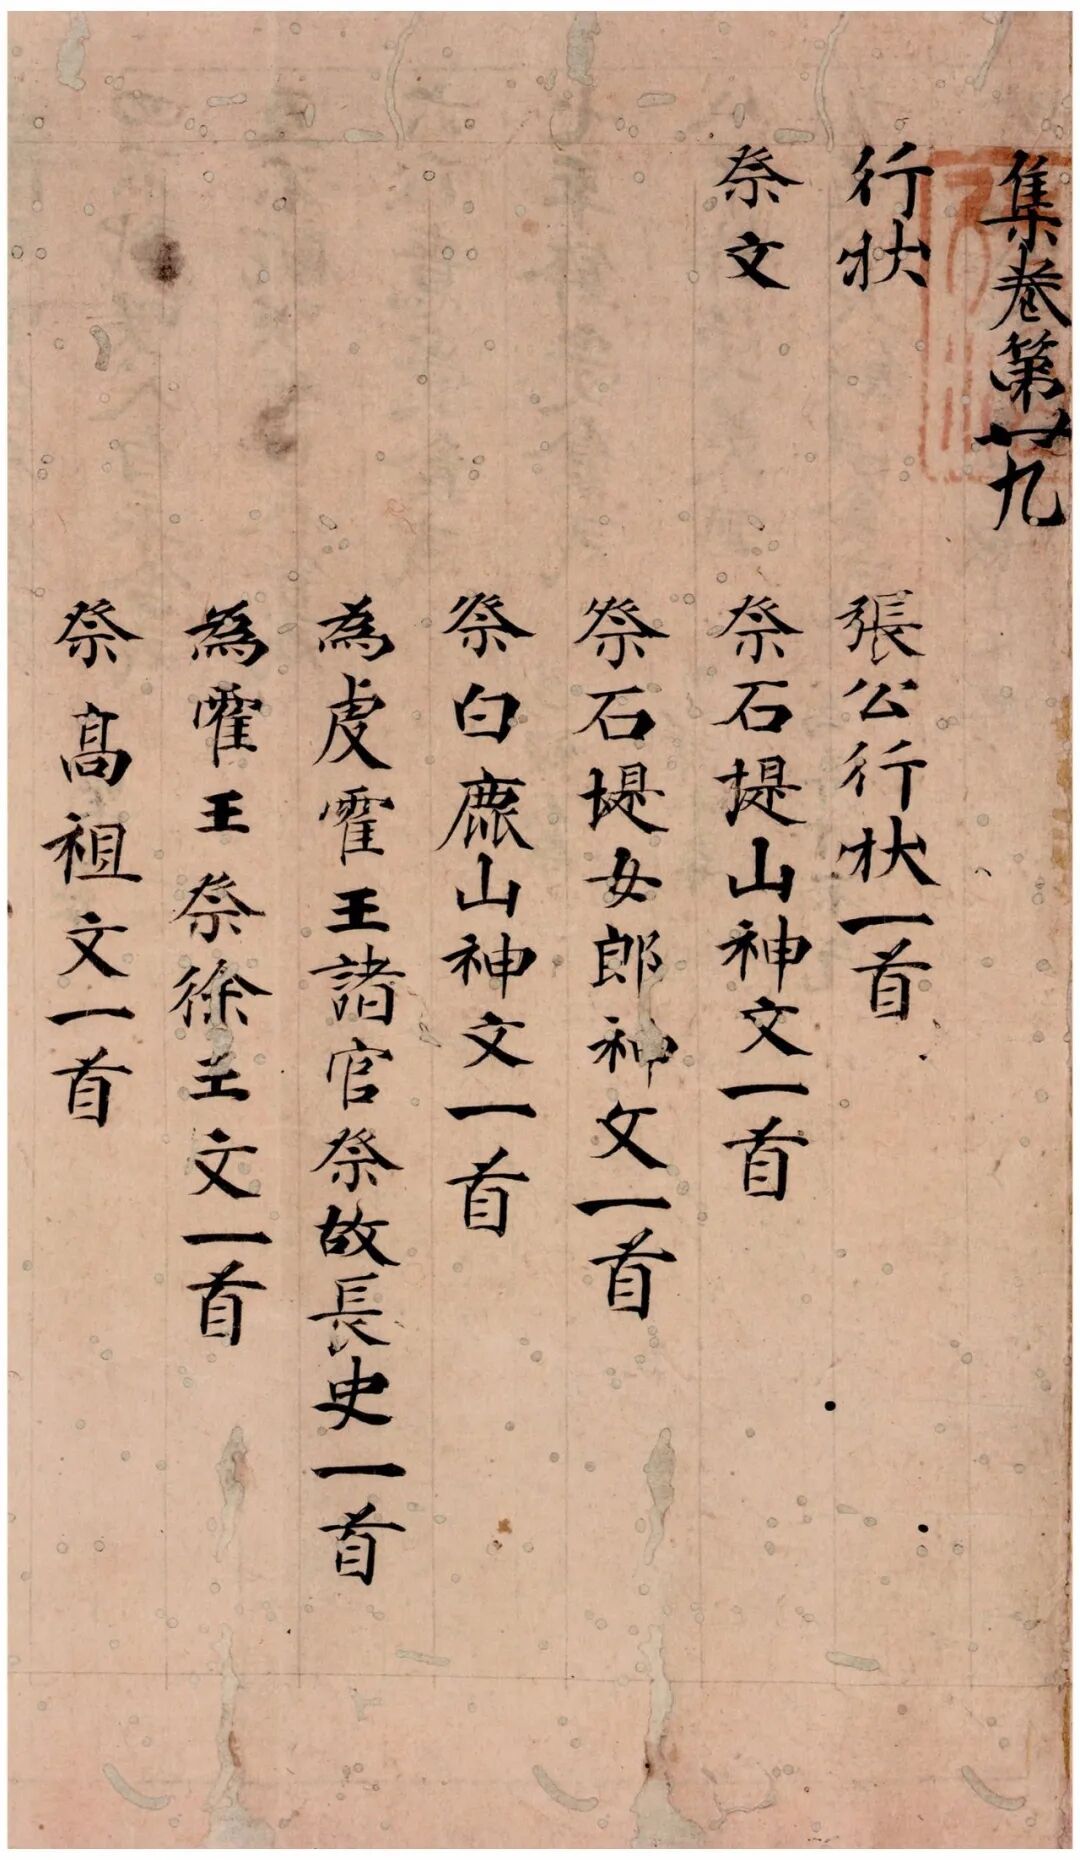 集卷第廿九
行狀
張公行狀一首
祭文
祭石堤山神文一首
祭石堤女郎神文一首
祭白鹿山神文一首
為虔霍王諸官祭故長史一首
為霍王祭徐王文一首
祭高祖文一首